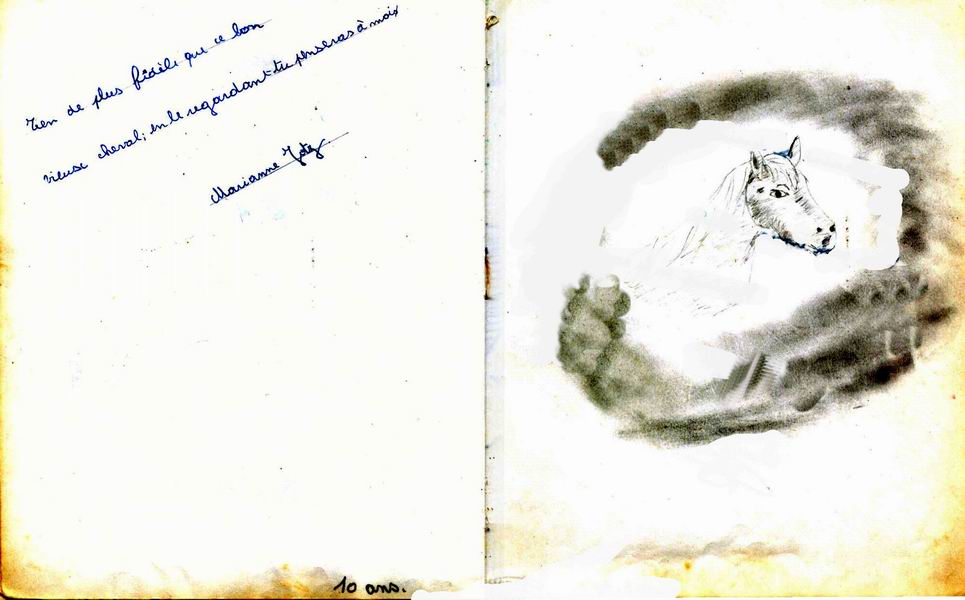 rien de plus fidèle que ce bon
vieux cheval; en le regardant tu penseras à moi
Marianne
10 ans.